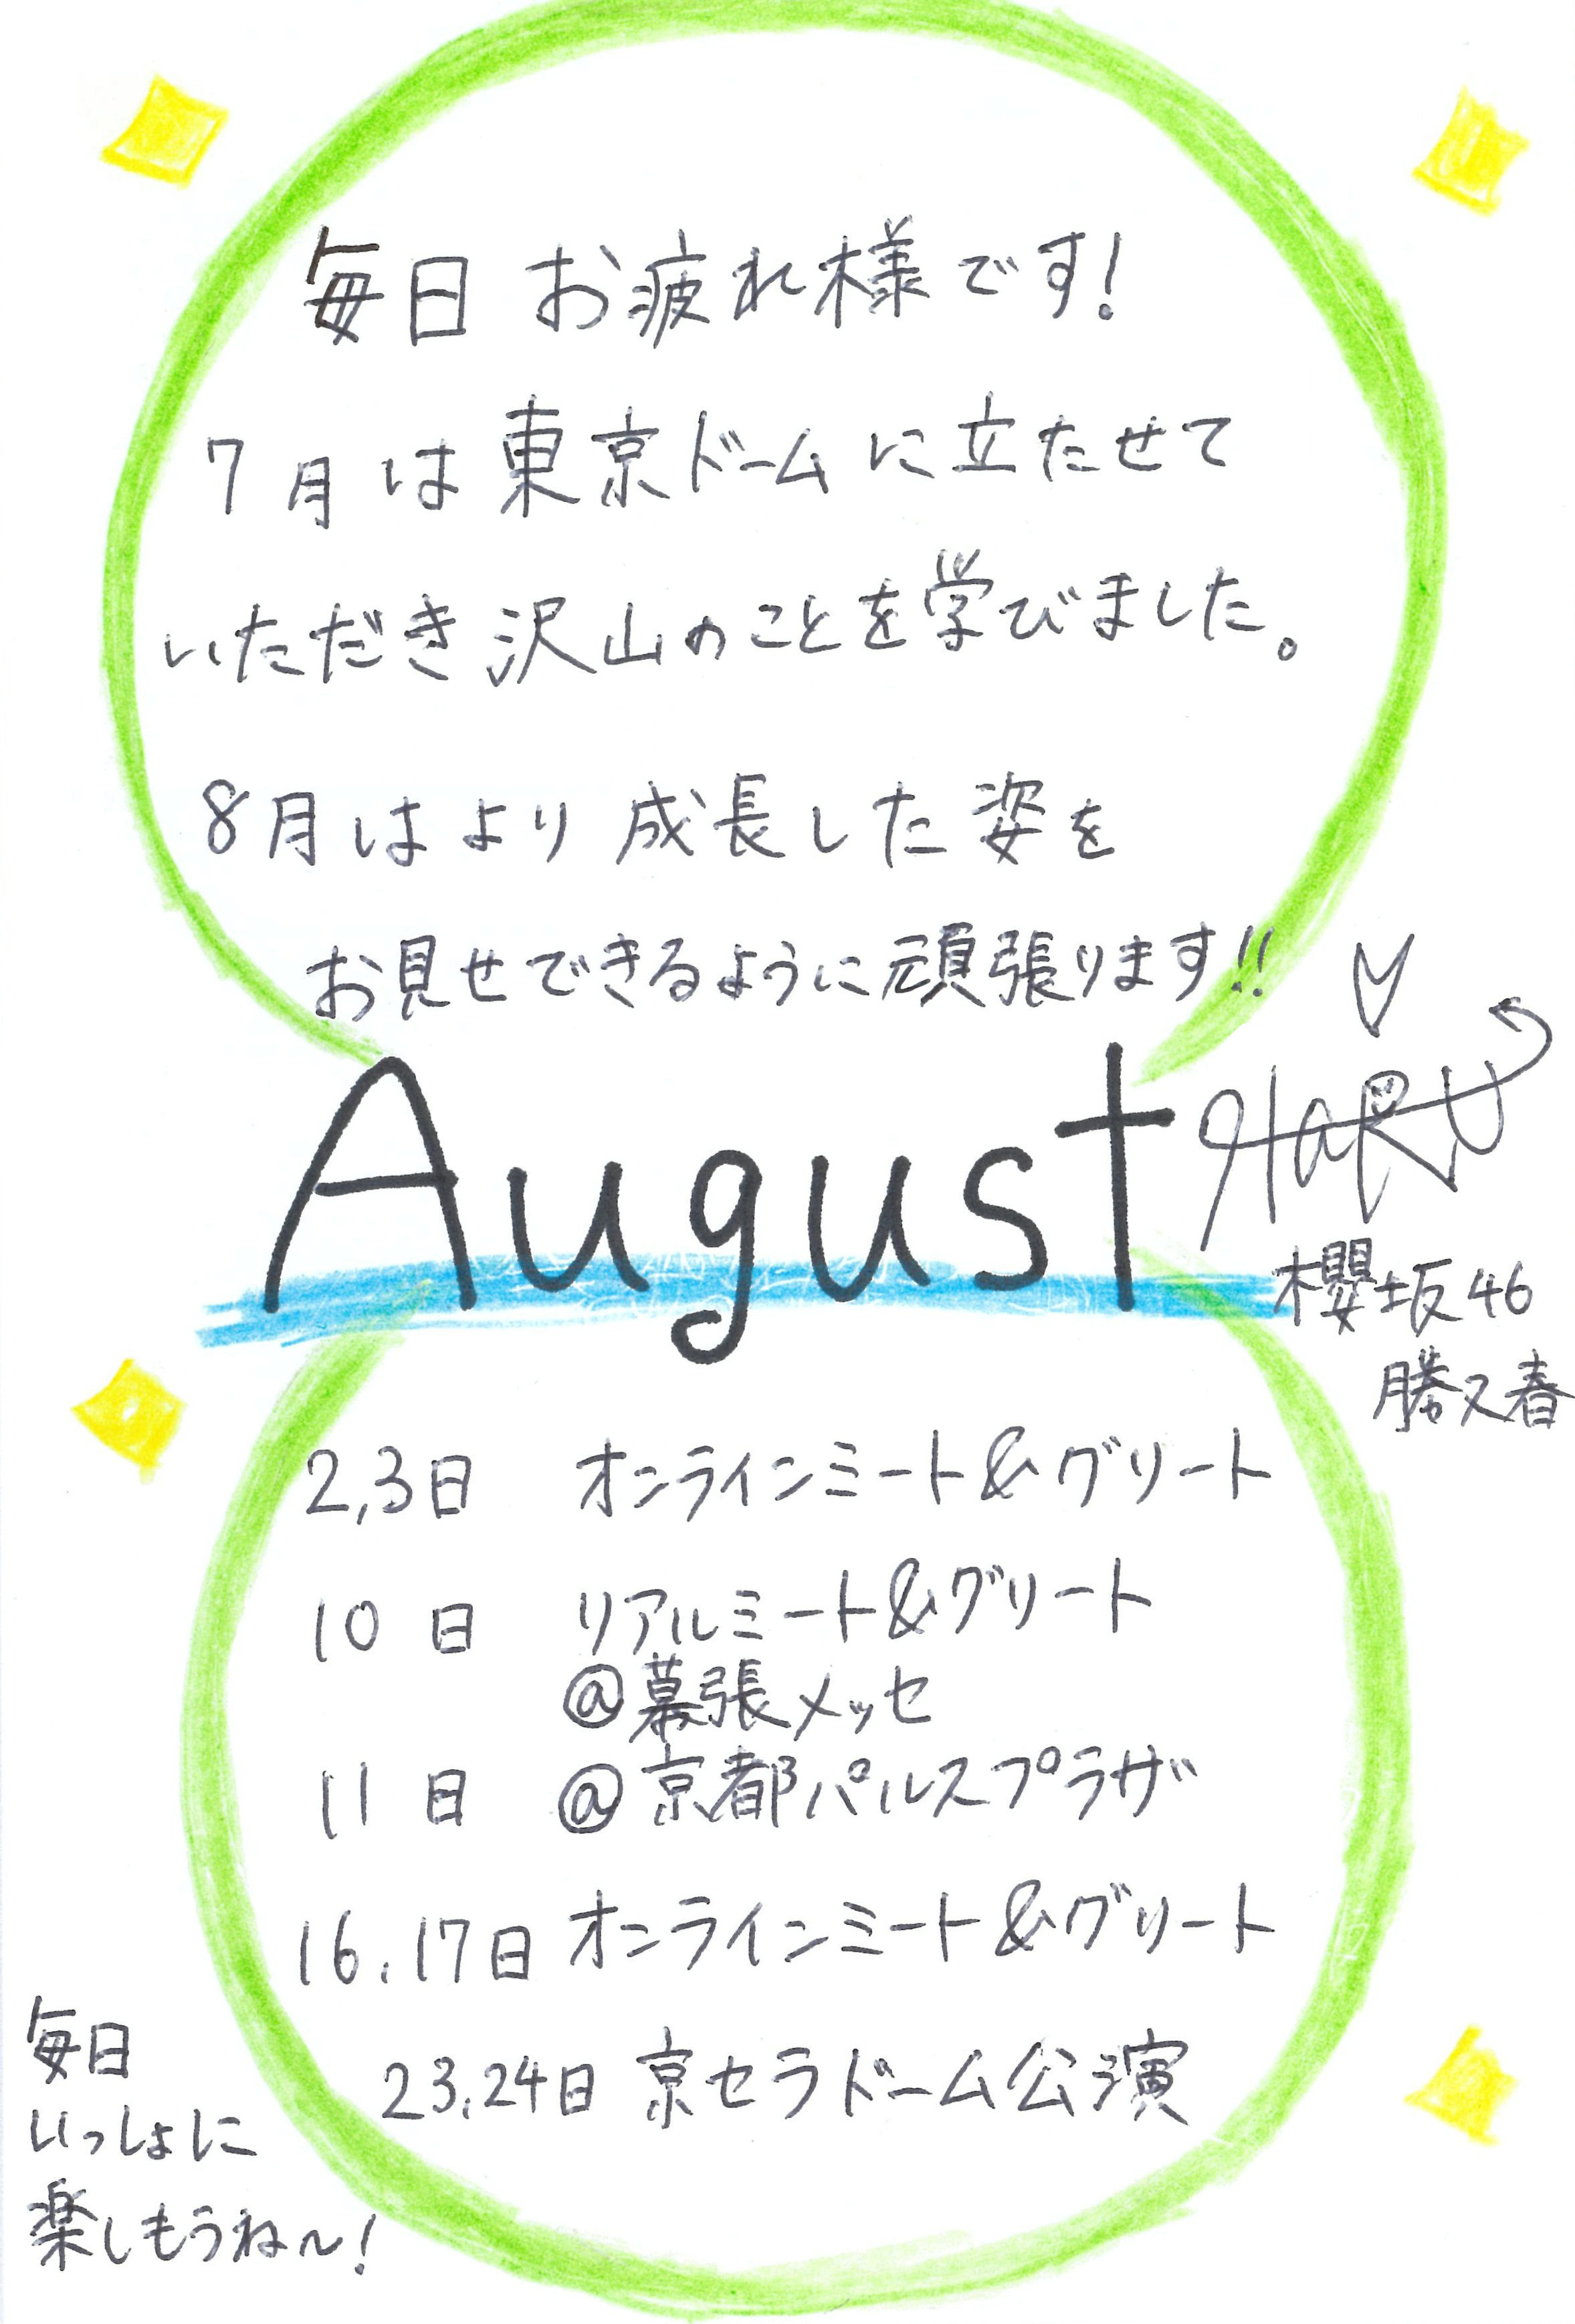 毎日お疲れ様です!
7月は東京ドームに立たせて
いただき沢山のことを学びました。
8月はより成長した姿を
お見せできるように頑張ります!!
August
HARU
櫻坂46
勝又春
2,3日 オンラインミート&グリート
10日 リアルミート&グリート
@幕張メッセ
11日 @京都パルスプラザ
16.17日 オンラインミート&グリート
23.24日 京セラドーム公演
毎日
いっしょに
楽しもうね~!